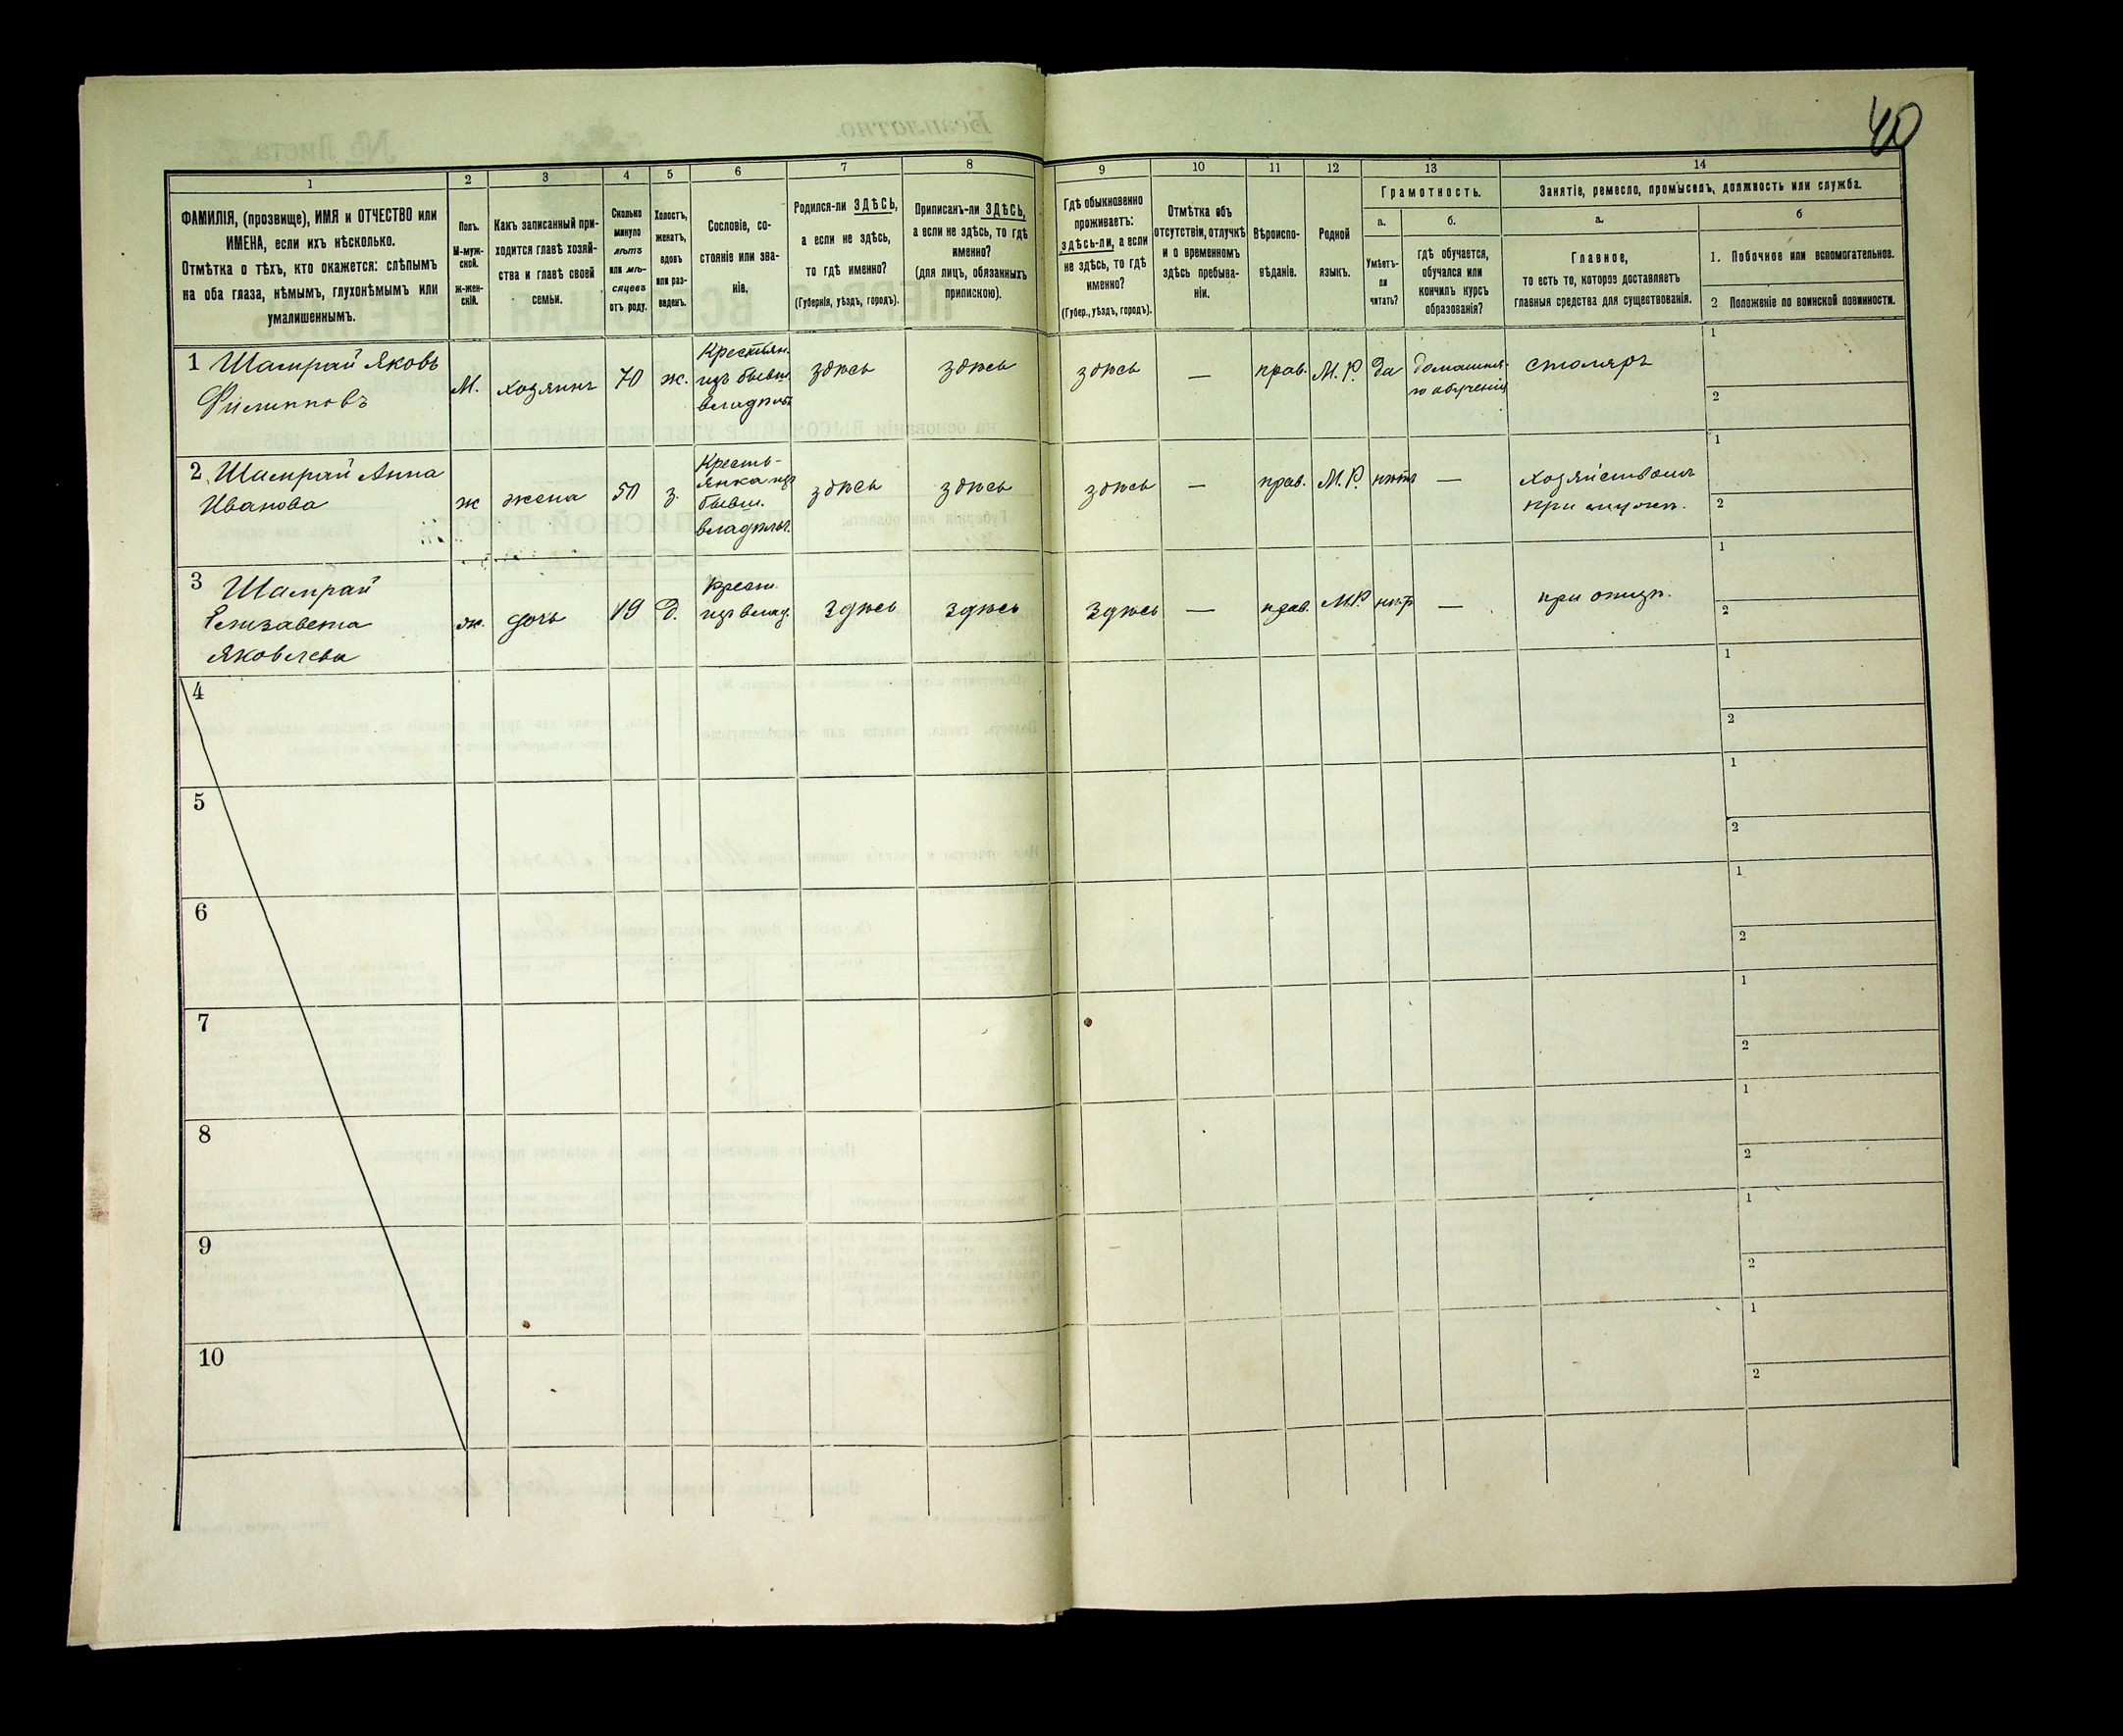 40
1
2
3
4
5
6
7
8
9
10
11
12
13
14
ФАМИЛІЯ, (прозвище), ИМЯ и ОТЧЕСТВО или
ИМЕНА, если ихъ нѣсколько.
Отмѣтка о тѣхъ, кто окажется: слѣпымъ
на оба глаза, нѣмымъ, глухонѣмымъ или
умалишеннымъ.
Полъ.
М-муж-
ской.
ж-жен-
скій.
Какъ записанный при-
ходится главѣ хозяй-
ства и главѣ своей
семьи.
Сколько
минуло
лѣтъ
или мѣ-
сяцевъ
отъ роду.
Холостъ,
женатъ,
вдовъ
или раз-
веденъ.
Сословіе, со-
стояніе или зва-
ніе.
Родился-ли ЗДѢСЬ,
а если не здѣсь,
то гдѣ именно?
(Губернія, уѣздъ, городъ).
Приписанъ-ли ЗДѢСЬ,
а если не здѣсь, то гдѣ
именно?
(для лицъ, обязанныхъ
припискою).
Гдѣ обыкновенно
проживаетъ:
здѣсь-ли, а если
не здѣсь, то гдѣ
именно?
(Губер., уѣздъ, городъ).
Отмѣтка объ
отсутствіи, отлучкѣ
и о временномъ
здѣсь пребыва-
ніи.
Вѣроиспо-
вѣданіе.
Родной
языкъ.
Грамотность.
а.
Умѣетъ-
ли
читать?
б.
гдѣ обучается,
обучался или
кончилъ курсъ
образованія?
Занятіе, ремесло, промыселъ, должность или служба.
а.
Главное,
то есть то, которое доставляетъ
главныя средства для существованія.
б
1. Побочное или вспомогательное.
2 Положеніе по воинской повинности.
1 Шамрай Яковъ
Филипповъ
М.
хозяинъ
70
ж.
Крестьян.
изъ бывш.
владѣльч.
здѣсь
здѣсь
здѣсь
—
прав.
М. Р.
да
домашня-
го обученія
столяръ
1
2
2 Шамрай Анна
Иванова
ж
жена
50
з.
Кресть-
янка изъ
бывш.
владѣльч.
здѣсь
здѣсь
здѣсь
—
прав.
М. Р.
нѣтъ
—
хозяйствомъ
при мужѣ.
1
2
3 Шамрай
Елизавета
Яковлева
ж.
дочь
19
д.
Крест.
изъ влад.
здѣсь
здѣсь
здѣсь
—
прав.
М.Р.
нѣтъ
—
при отцѣ.
1
2
4
1
2
5
1
2
6
1
2
7
1
2
8
1
2
9
1
2
10
1
2